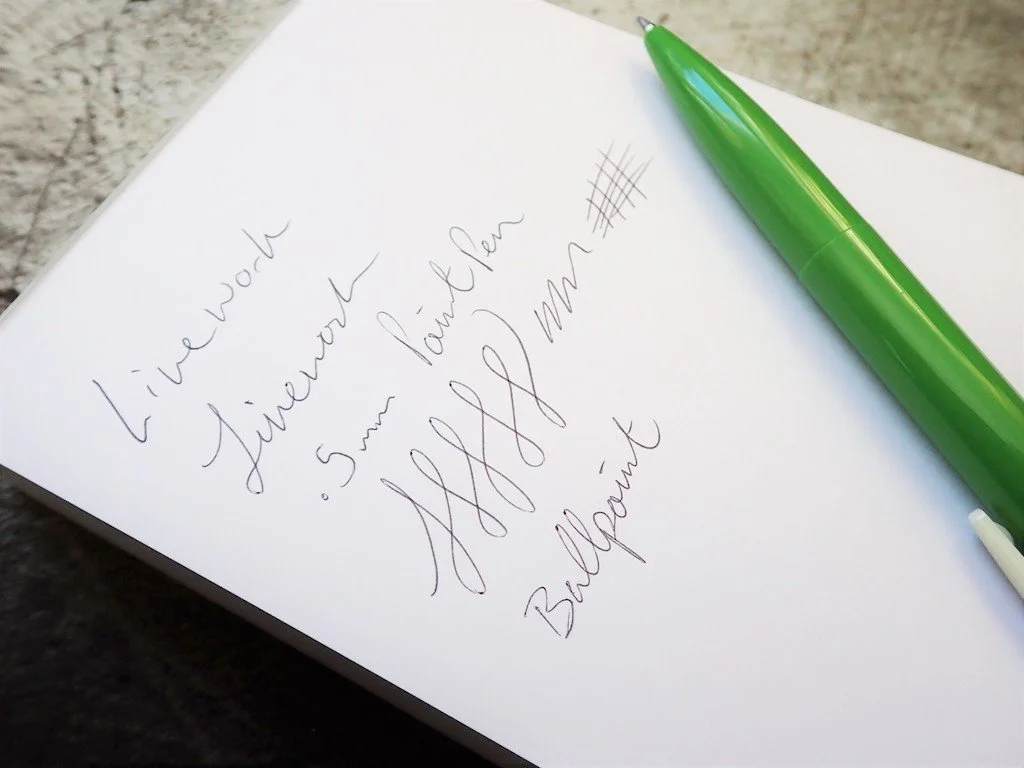 Linework
Linework
.5mm Point Pen
Ballpoint